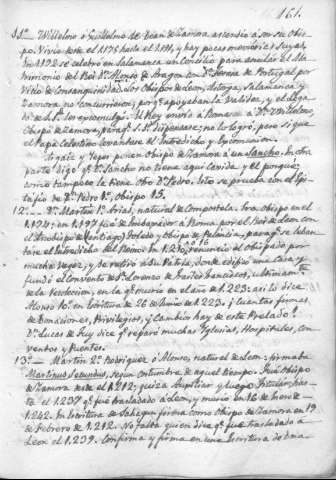 161.
11º. Willelmo ó Guillelmo de Dean de Zamora ascendió a son su Obis-
po. Vivia desde el 1175 hasta el 1191, y hay pocas memorias suyas.
En 1192 se celebró en Salamanca un Concilio para anular el Ma-
trimonio del Rei Dn Alonso de Aragon con Dª Teresa de Portugal por
Vicio de Consanguinidad. Los Obispos de Leon, Astorga, Salamanca y
Zamora, no concurrieron, porqe apoyaban la Validez, y el Lega-
do de S.S. los excomulgó. El Rey envio a Roma a Dn Willelmo,
Obispo de Zamora, para qe S.S. dispensase; no lo logró, pero si que
el Papa Celestino levantase el Entredicho y Excomunion.
Argaiz y Yepes ponen Obispo de Zamora a un Sancho. En otra
parte dige qe Dn Sancho no tiene aqui cavida. Y el porqué
12.— Dn Martin 1º Arias, natural de Compostela. Era Obispo en el
1.191: en 1.197 fué de Embajador a Roma por el Rei de Leon con
el Arzobispo de Santiago, Prelado y Obispo de Palencia, para qe se levan-
tare el Entredicho del Reino. En 1.210 renunció el Obispado por
mucha vejez, y se retiró a su Patria, donde edificó una Casa y
fundó el Convento de Sn Lorenzo de frailes franciscos, ultimamte
de la Recoleccion, en la qe murió en el año de 1.223: asi lo dice
Alonso 10º en Escritura de 26 de Junio de 1.223; y cuantas firmas
de Donaciones, Privilegios, y Cambios hay de este Prelado.
Dn Lucas de Tuy dice qe reparó muchas Yglesias, Hospitales, Con-
ventos y Puentes.
13º.— Martin 2º Rodriguez ó Alonso, natural de Leon: firmaba
Martinus Secundus, segun costumbre de aquel tiempo. Fué Obispo
de Zamora desde el 1.212; quiza Auxiliar y luego Titular, has-
ta el 1.237 qe fué trasladado a Leon, y murió en 16 de Enero de
1.242. En Escritura de Sahagun firma como Obispo de Zamora en 19
de Febrero de 1.212. No falta quien dice qe fué trasladado a
Leon el 1.239. Confirma y firma en una Escritura de Dona-